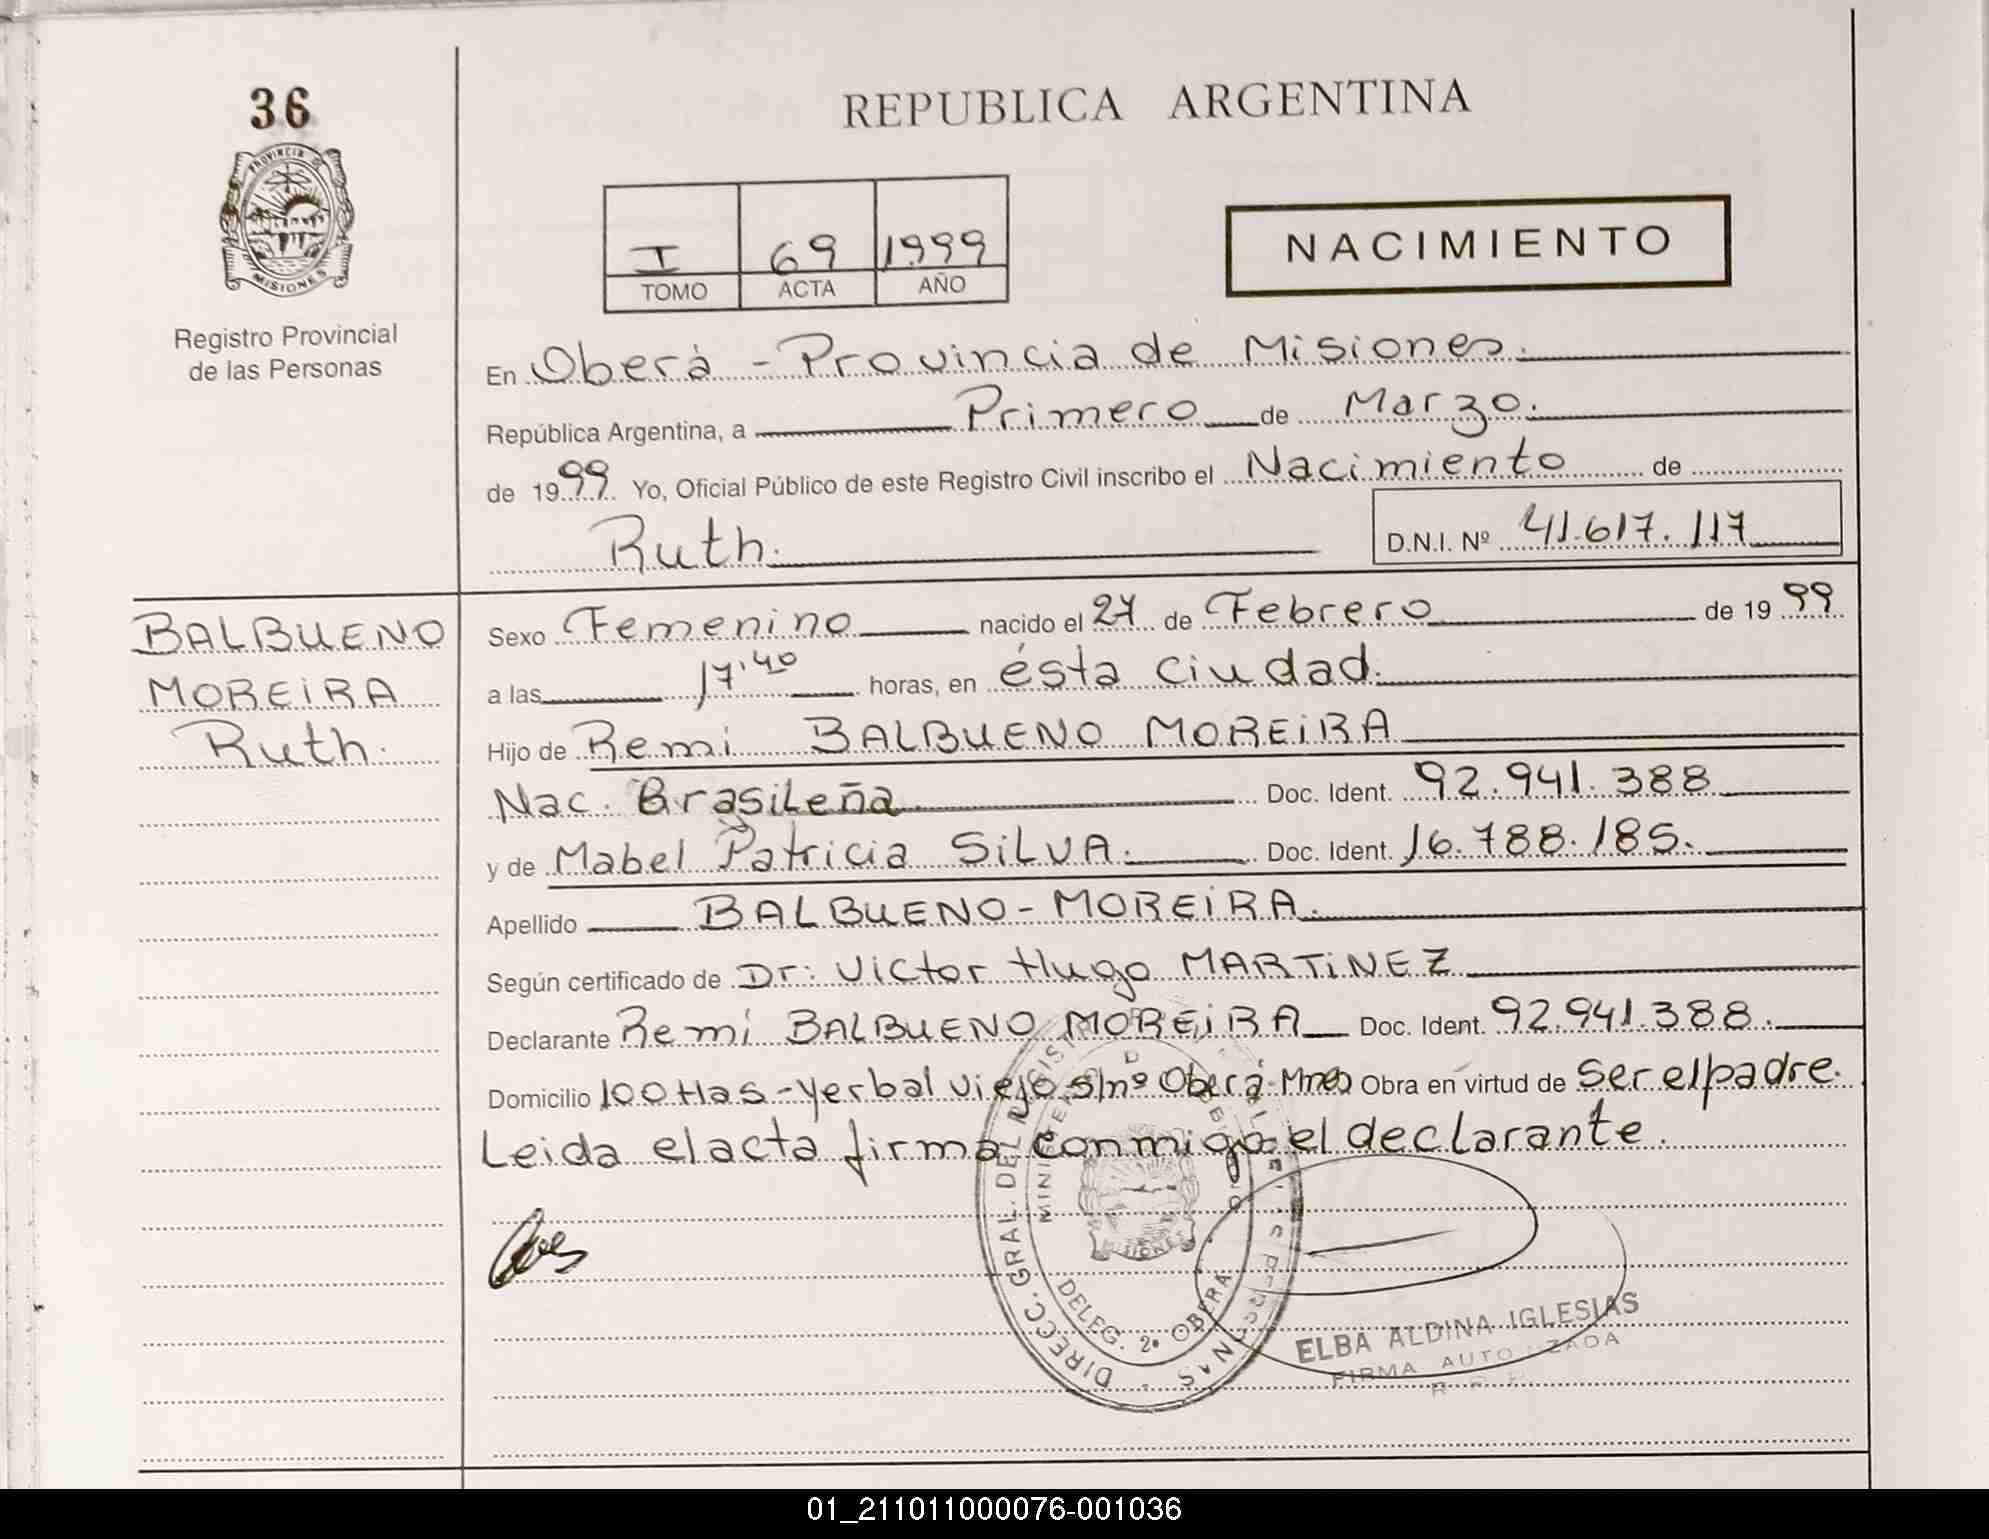 36
PROVINCIA DE
MISIONES
Registro Provincial
de las Personas
REPUBLICA ARGENTINA
I 69 1999
TOMO ACTA AÑO
NACIMIENTO
En Oberá - Provincia de Misiones.
República Argentina, a Primero de Marzo.
de 1999 Yo, Oficial Público de este Registro Civil inscribo el Nacimiento de
Ruth. D.N.I. Nº 41.617.117
BALBUENO
MOREIRA
Ruth.
Sexo Femenino nacido el 27 de Febrero de 1999
a las 17'40 horas, en ésta ciudad.
Hijo de Remi BALBUENO MOREIRA
Nac. Brasileña Doc. Ident. 92.941.388
y de Mabel Patricia SILVA. Doc. Ident. 16.788.185.
Apellido BALBUENO-MOREIRA.
Según certificado de Dr: Victor Hugo MARTINEZ
Declarante Remi BALBUENO MOREIRA Doc. Ident. 92.941.388.
Domicilio 100 Has-Yerbal Viejo s/nº Oberá-Mnes Obra en virtud de ser el padre.
Leida el acta firma conmigo el declarante.
DIRECC. GRAL. DEL REGIST PERSONAS
MINISTER
DELEG. 2º OBERA
MISIONES
ELBA ALDINA IGLESIAS
FIRMA AUTORIZADA
01_211011000076-001036